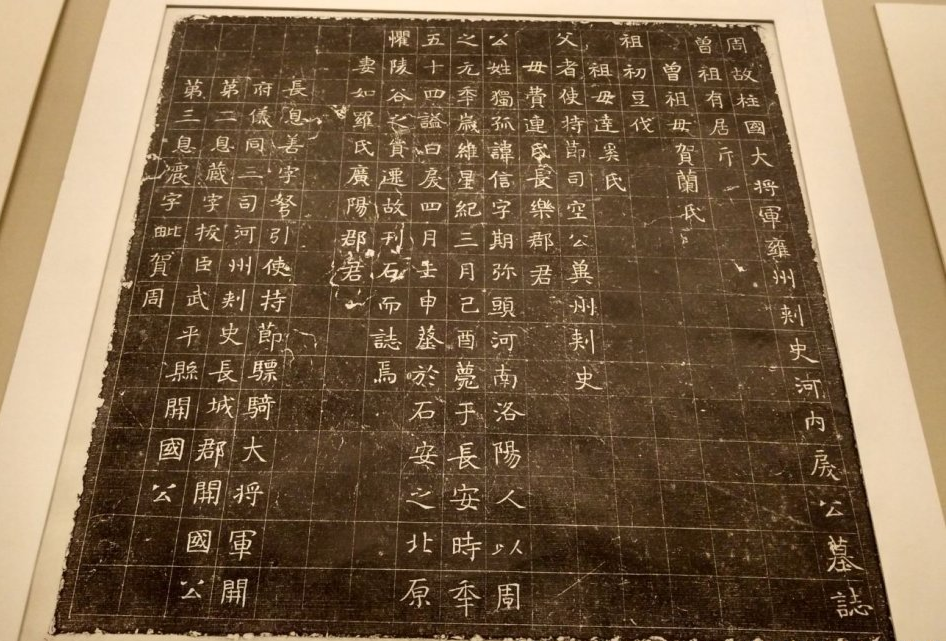 周故柱國大将軍雍州刾史河内戾公墓誌
曾祖有居斤
曾祖母賀蘭氏
祖初豆伐
祖母達奚氏
父者使持節司空公冀州刾史
母費連氏長樂郡君
公姓獨孤諱信字期弥頭河南洛陽人以周
之元年歲維星紀三月己酉薨于長安時年
五十四謚曰戾四月壬申墓於石安之北原
懼陵谷之貿遷故刊石而誌焉
妻如羅氏廣陽郡君
長息善字弩引使持節驃騎大将軍開
府儀同三司河州刾史長城郡開國公
第二息藏字拔臣武平縣開國公
第三息震字毗賀周